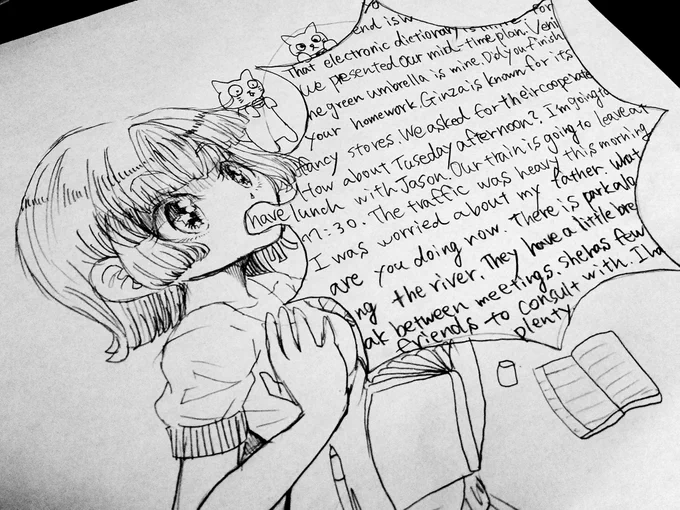 end is
That electronic dictionary is mine. For
we presented our mid-time plan.
he green umbrella is mine. Did you finish
your homework. Ginza is known for its
fancy stores. We asked for their cooperate
How about Tuseday afternoon?. I'm going to
have lunch with Jason. Our train is going to leave at
11:30. The traffic was heavy this morning
I was worried about my father. What
are you doing now. There is park alo
ng the river. They have a little bre
ak between meetings. she has few
friends to consult with. I ha
plenty